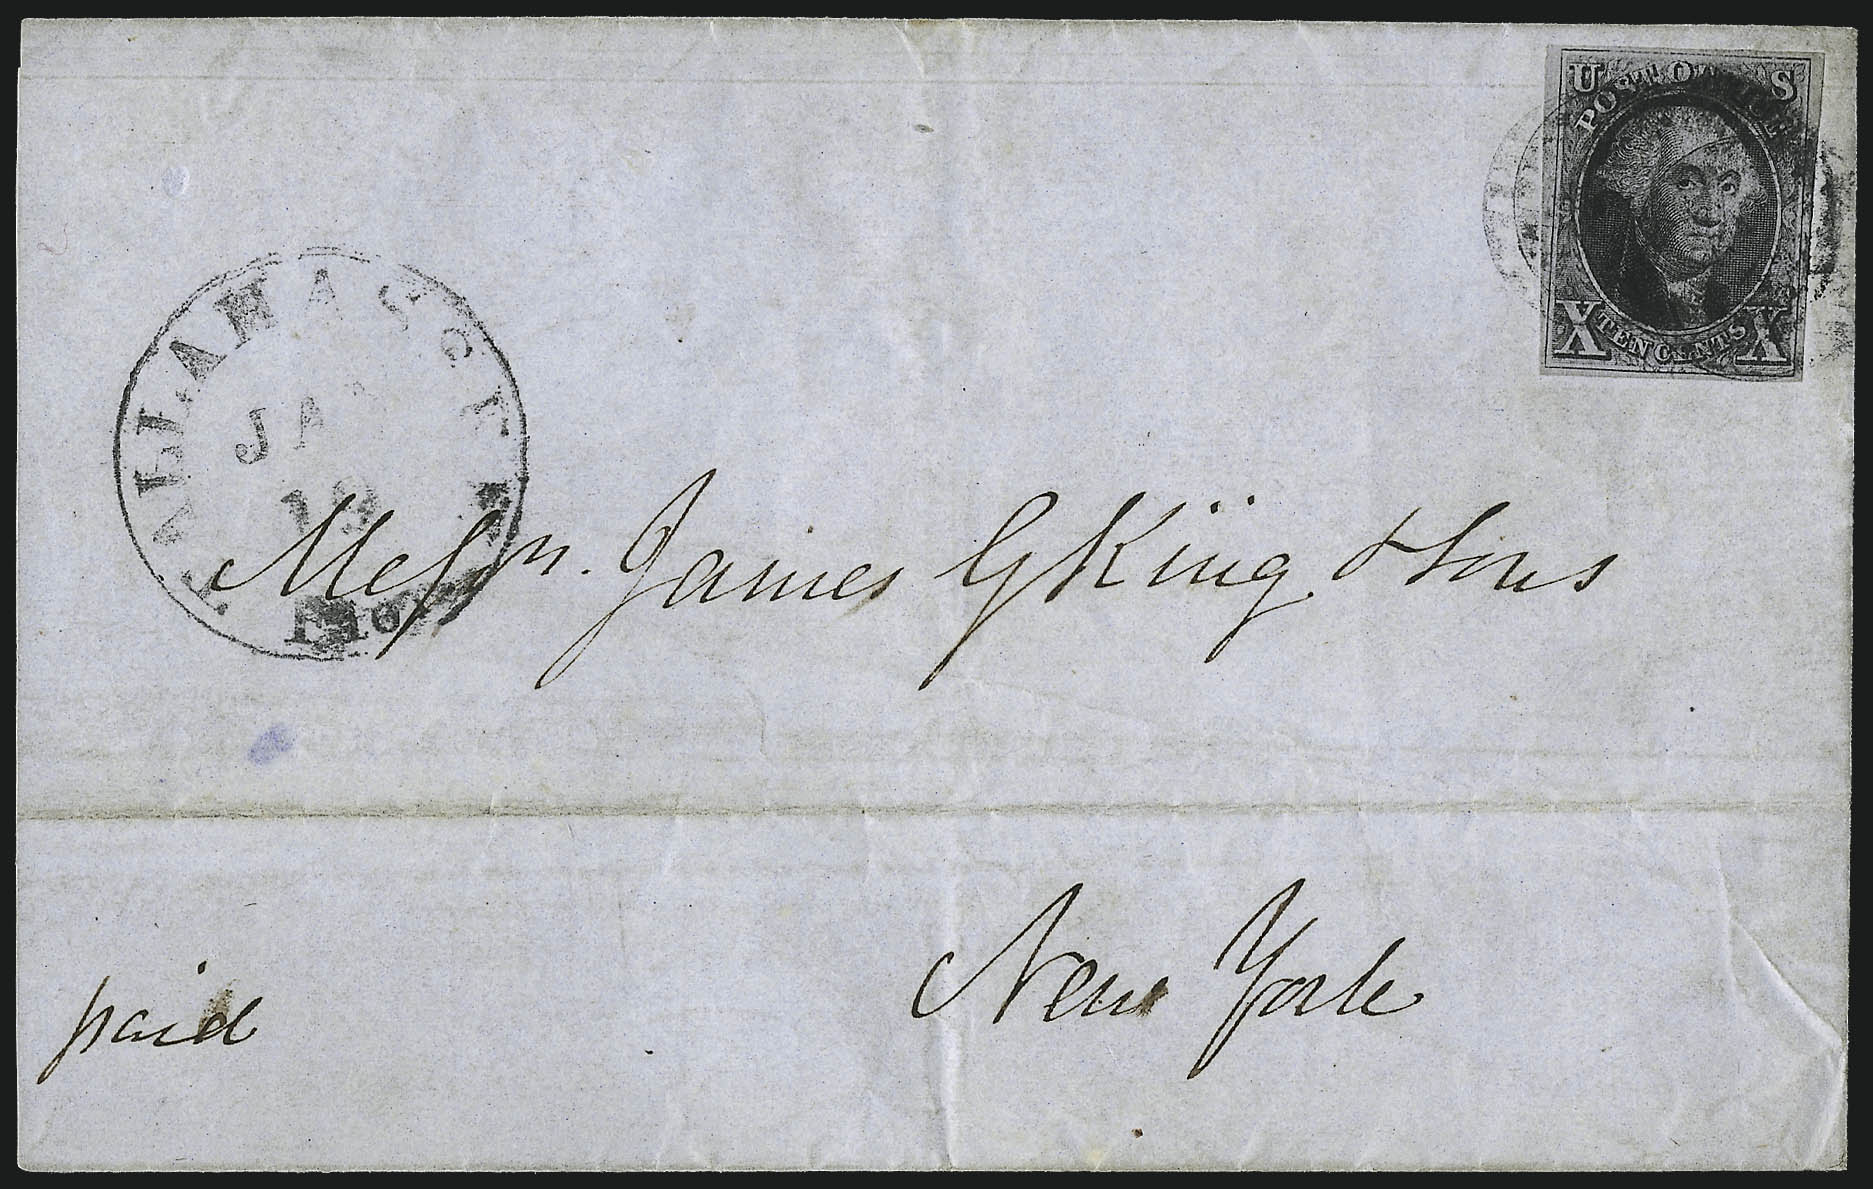 U S
POST OFFICE
X TEN CENTS X
TALLAHASSEE
JAN
19
Flor
Messrs. James G King & Sons
New York
paid